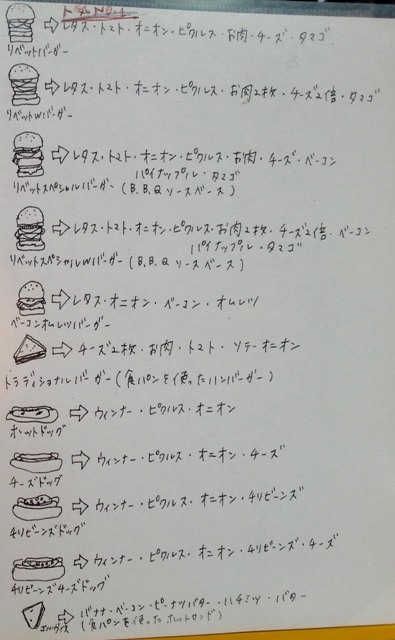 人気No.1
レタス・トマト・オニオン・ピクルス・お肉・チーズ・タマゴ
リベットバーガー
レタス・トマト・オニオン・ピクルス・お肉2枚・チーズ2倍・タマゴ
リベットWバーガー
レタス・トマト・オニオン・ピクルス・お肉・チーズ・ベーコン
パイナップル・タマゴ
リベットスペシャルバーガー (B.B.Qソースベース)
レタス・トマト・オニオン・ピクルス・お肉2枚・チーズ2倍・ベーコン
パイナップル・タマゴ
リベットスペシャルWバーガー (B.B.Qソースベース)
レタス・オニオン・ベーコン・オムレツ
ベーコンオムレツバーガー
チーズ2枚・お肉・トマト・ソテーオニオン
トラディショナルバーガー (食パンを使ったハンバーガー)
ウィンナー・ピクルス・オニオン
ホットドッグ
ウィンナー・ピクルス・オニオン・チーズ
チーズドッグ
ウィンナー・ピクルス・オニオン・チリビーンズ
チリビーンズドッグ
ウィンナー・ピクルス・オニオン・チリビーンズ・チーズ
チリビーンズチーズドッグ
バナナ・ベーコン・ピーナツバター・ハチミツ・バター
(食パンを使ったホットサンド)